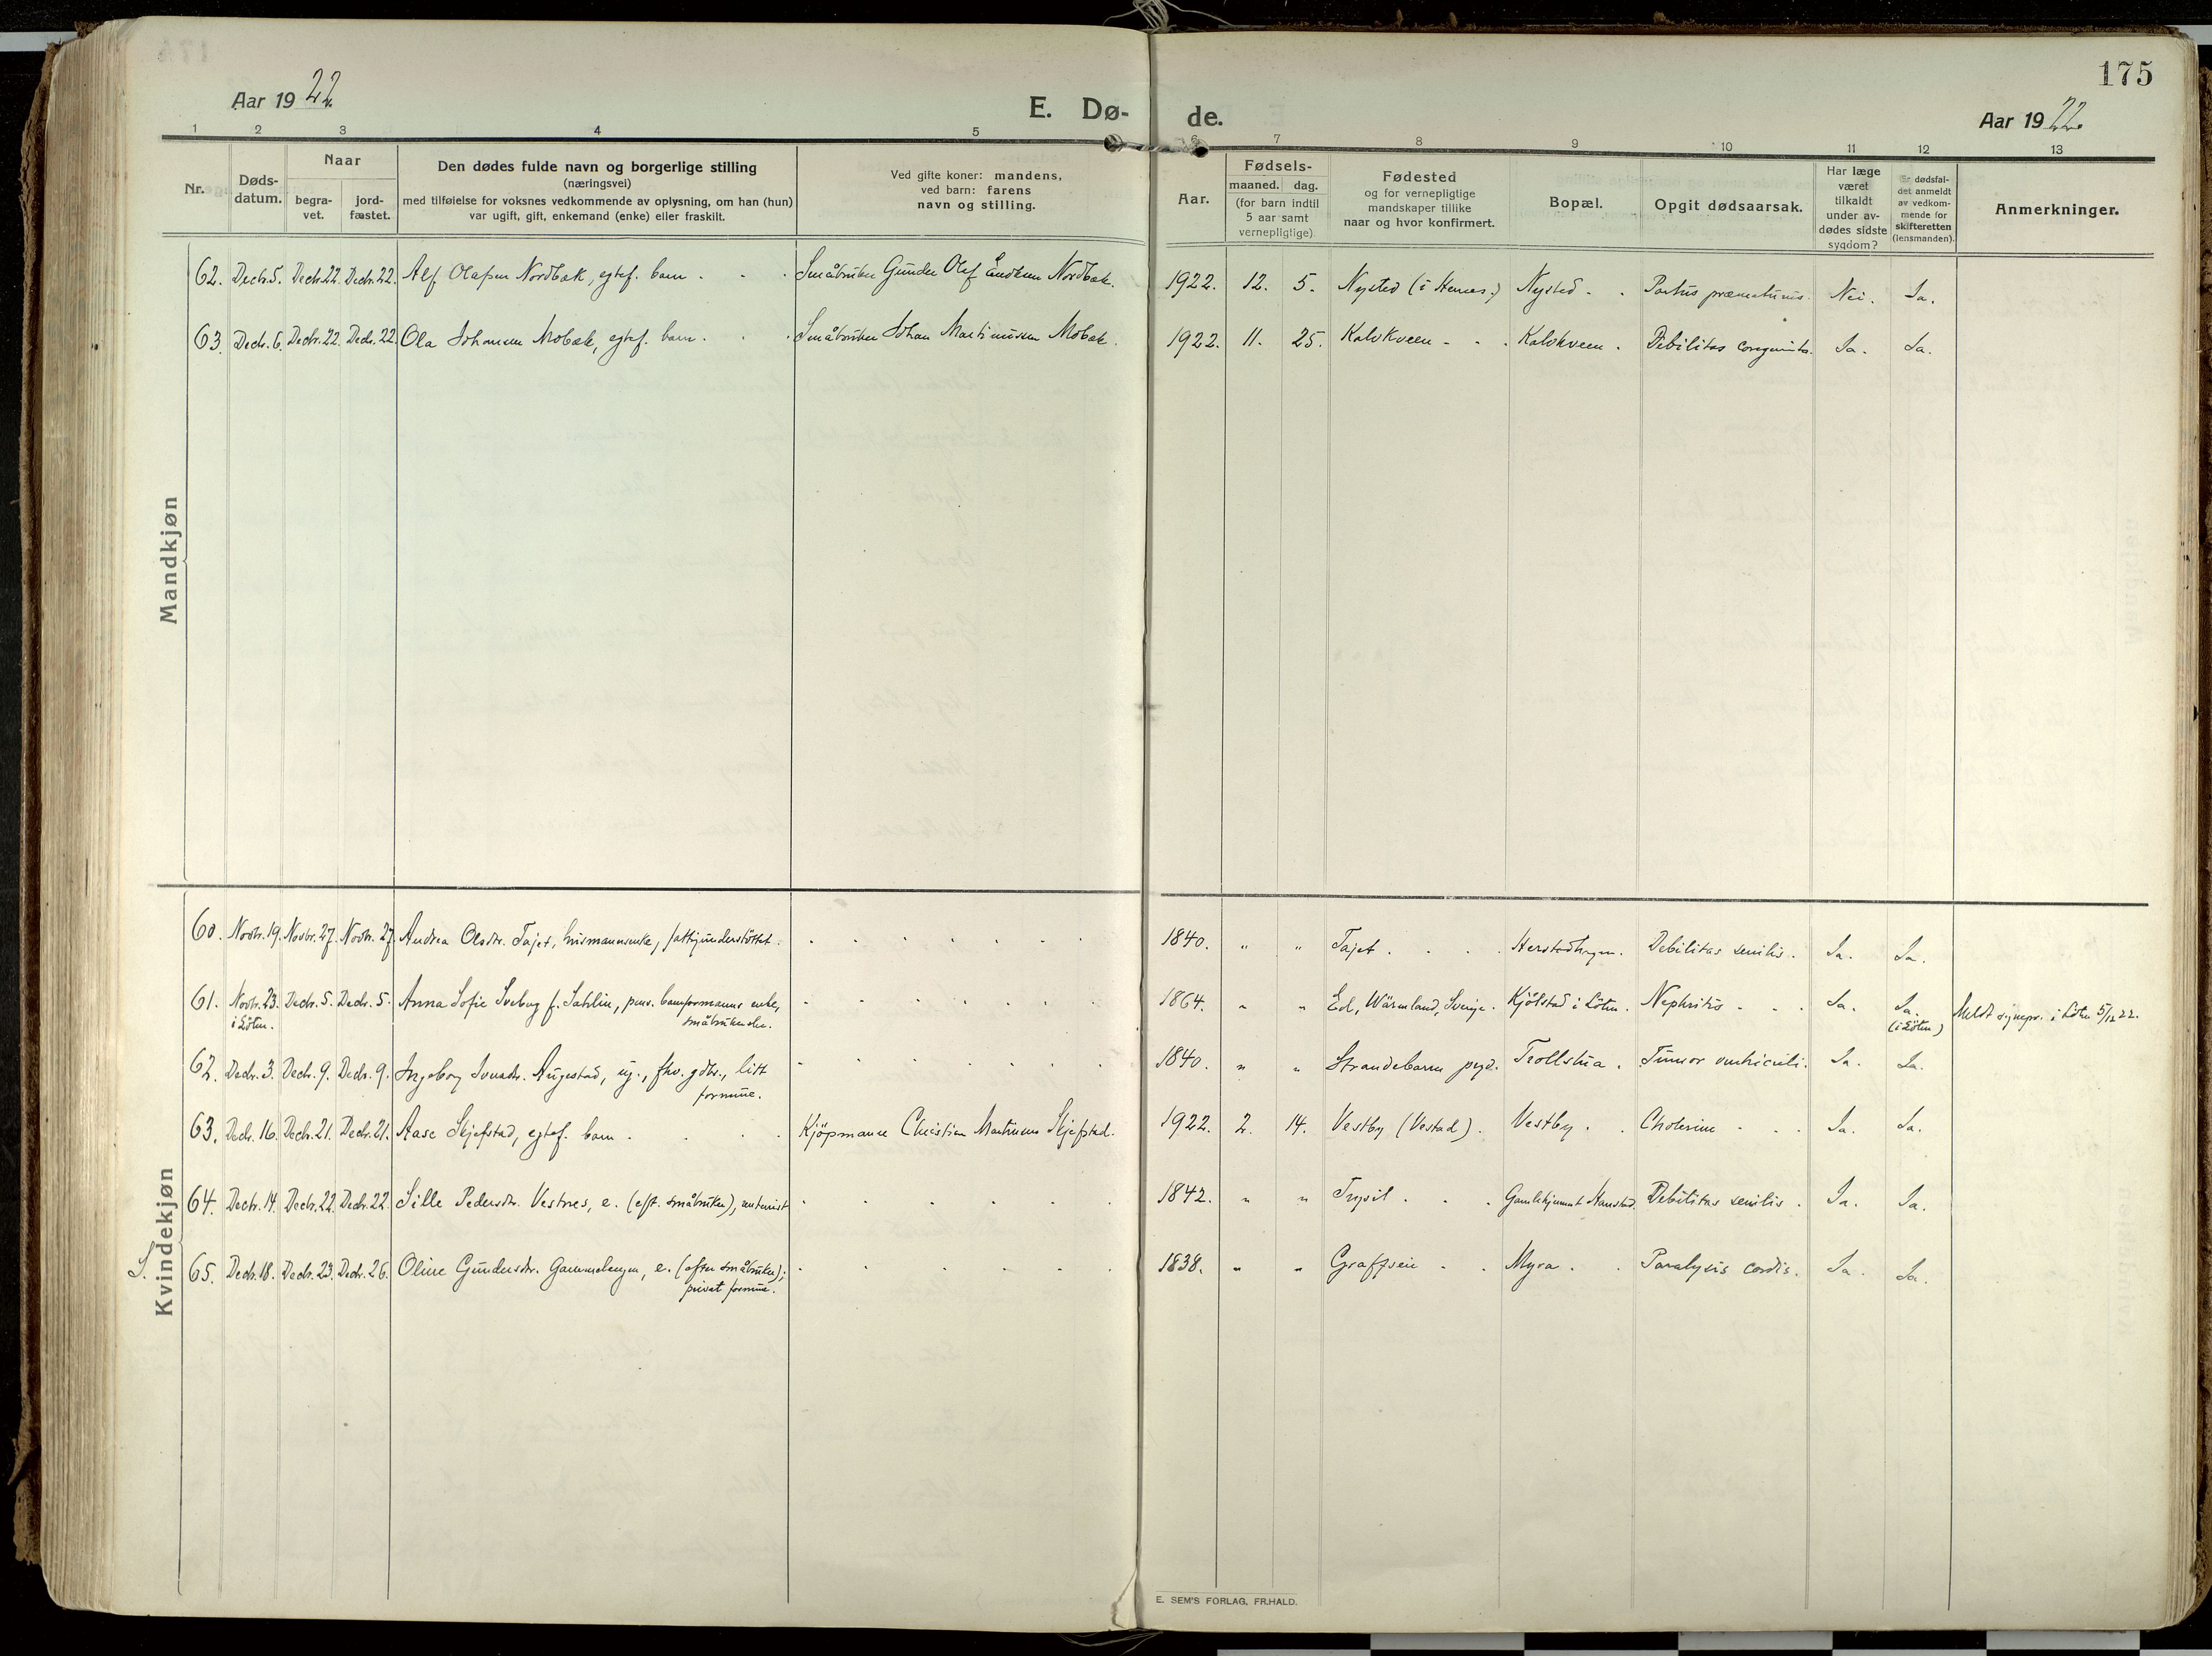 175
Aar 1922
E. Dø-
de.
Aar 1922.
1 2 3 4 5 6 7 8 9 10 11 12 13
Nr.
Døds-
datum.
Naar
begra-
vet.
jord-
fæstet.
Den dødes fulde navn og borgerlige stilling
(næringsvei)
med tilføielse for voksnes vedkommende av oplysning, om han (hun)
var ugift, gift, enkemand (enke) eller fraskilt.
Ved gifte koner: mandens,
ved barn: farens
navn og stilling.
Aar.
Fødsels-
maaned. dag.
(for barn indtil
5 aar samt
vernepligtige)
Fødested
og for vernepligtige
mandskaper tillike
naar og hvor konfirmert.
Bopæl.
Opgit dødsaarsak.
Har læge
været
tilkaldt
under av-
dødes sidste
sygdom?
Er dødsfal-
det anmeldt
av vedkom-
mende for
skifteretten
(lensmanden).
Anmerkninger.
Mandkjøn
62. Decbr. 5. Decbr. 22. Decbr. 22. Alf Olafsen Nordbæk, egtef. barn. Småbruker Gunder Olef Nordbæk. 1922. 12. 5. Nysted Nysted. Partus præmaturus. Nei. Ja.
63. Decbr. 6. Decbr. 22. Decbr. 22. Ola Johansen Mobæk, egtef. barn. Småbruker Johan Martinusen Mobæk. 1922. 11. 25. Kalvkveen. Kalvkveen. Debilitas congenita. Ja. Ja.
Kvindekjøn
60. Novbr. 19. Novbr. 27. Novbr. 27. Andrea Olsdtr. Tajet, husmannsenke, fattigunderstöttet. 1840. " " Tajet. Herstadhagen. Debilitas senilis. Ja. Ja.
61. Novbr. 23. Decbr. 5. Decbr. 5. Anna Sofie Sveberg f. Sahlin, enke, 1864. " " Ed, Wärmland, Sverige. Kjölstad i Löten. Nephritis. Ja. Ja. Meldt sognepr. i Löten 5/12 22.
i Löten. (i Löten)
62. Decbr. 3. Decbr. 9. Decbr. 9. Ingeborg Augestad, ug., fhv. litt 1840. " " Strandebarm pgd. Trollstua. Tumor ventriculi. Ja. Ja.
formue.
63. Decbr. 16. Decbr. 21. Decbr. 21. Aase Skjefstad, egtef. barn. Kjöpmann Christian Martinus Skjefstad. 1922. 2. 14. Vestby (Vestad). Vestby. Cholerine. Ja. Ja.
64. Decbr. 14. Decbr. 22. Decbr. 22. Sille Pedersdtr. Vestnes, e. (eft. småbruker), 1842. " " Trysil. Gamlehjemmet Debilitas senilis. Ja. Ja.
S. 65. Decbr. 18. Decbr. 23. Decbr. 26. Oline Gundersdtr. Gammelengen, e. (efter småbruker); 1838. " " Myra. Paralysis cordis. Ja. Ja.
privat formue.
E. SEM'S FORLAG, FR.HALD.